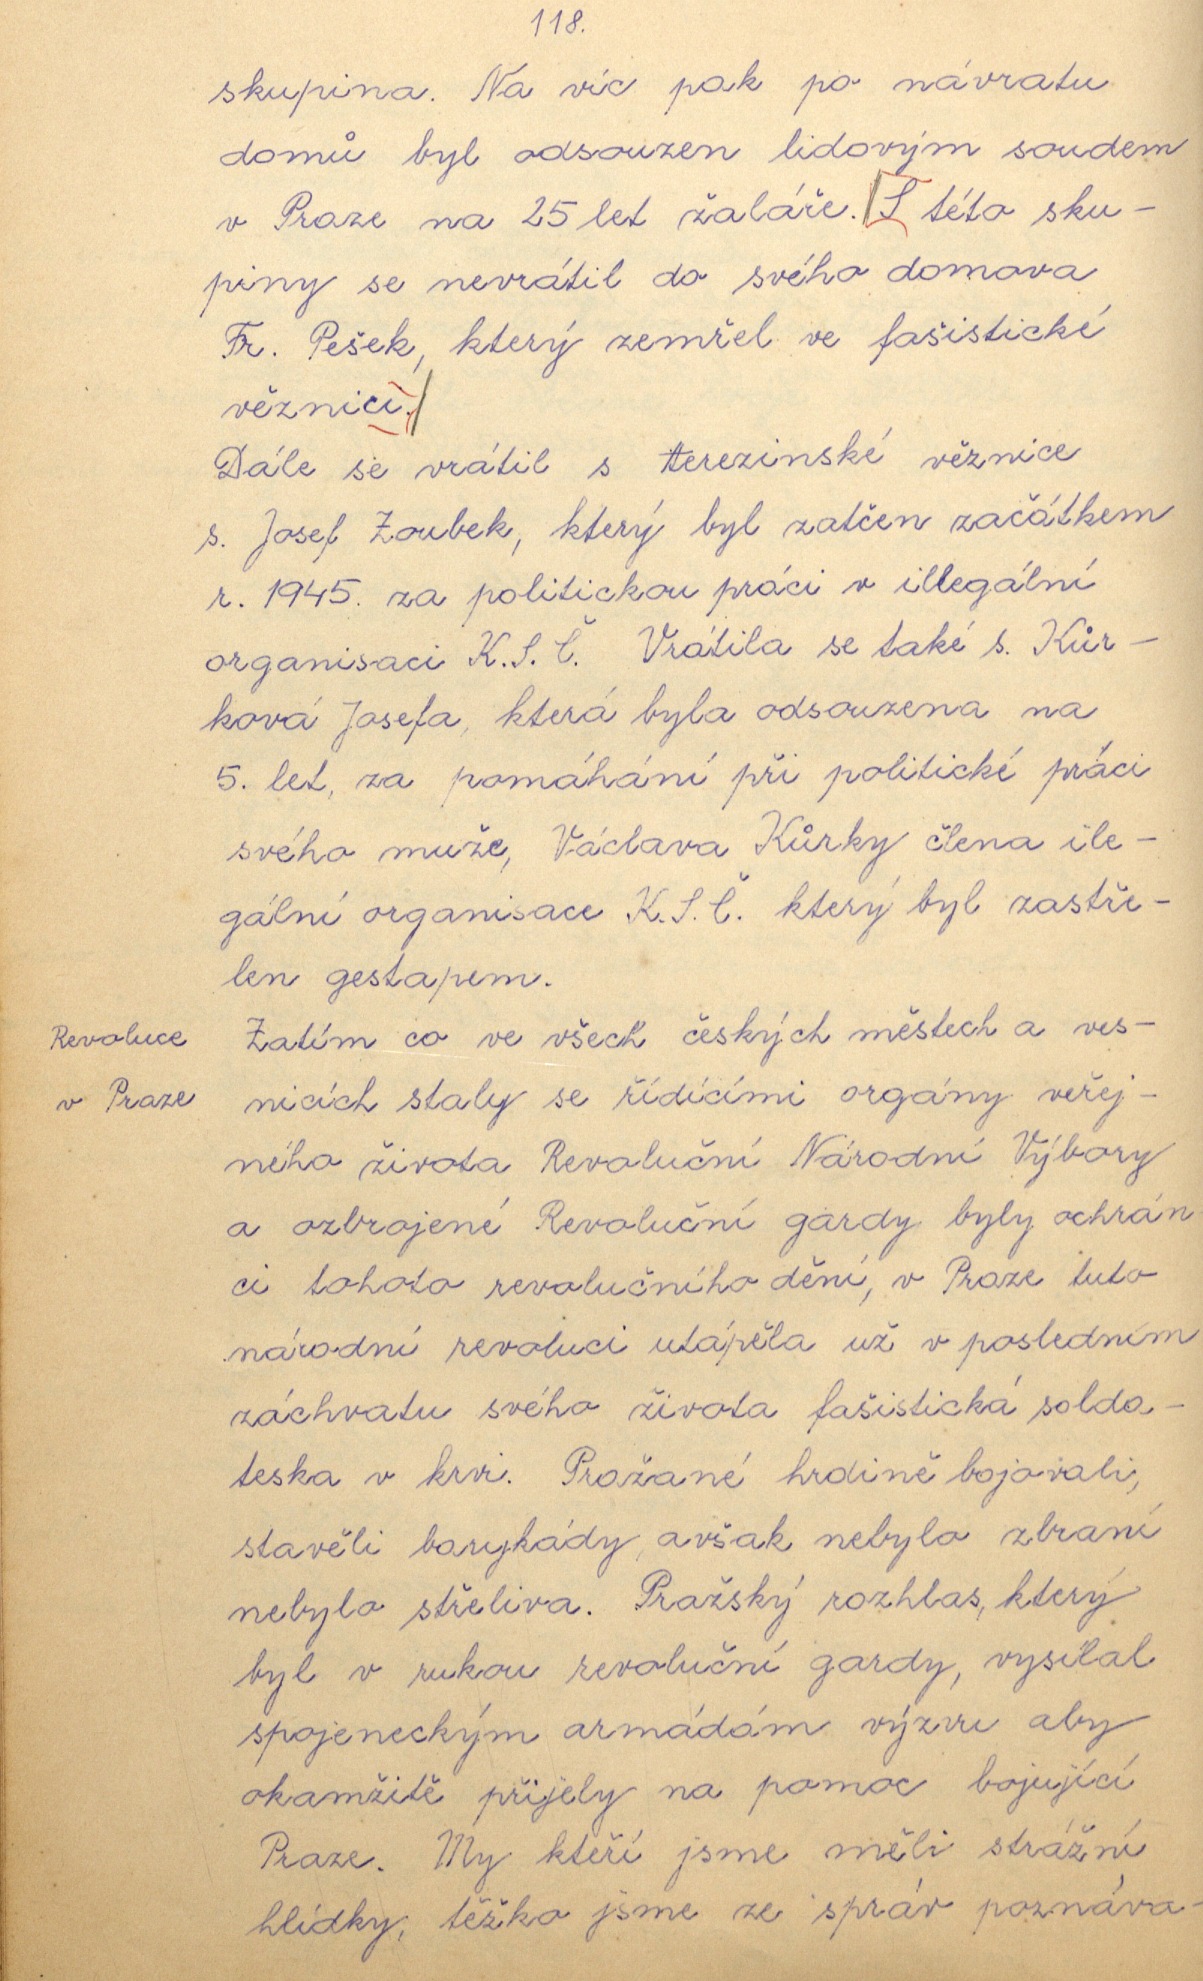 118.
skupina. Na víc pak po návratu
domů byl odsouzen lidovým soudem
v Praze na 25 let žaláře. S této sku-
piny se nevrátil do svého domova
Fr. Pešek, který zemřel ve fašistické
věznici.
Dále se vrátil s terezinské věznice
s. Josef Zoubek, který byl zatčen začátkem
r. 1945. za politickou práci v illegální
organisaci K.S.Č. Vrátila se také s. Kůr-
ková Josefa, která byla odsouzena na
5. let, za pomáhání při politické práci
svého muže, Václava Kůrky člena ile-
gální organisace K.S.Č. který byl zastře-
len gestapem.
Revoluce
v Praze
Zatím co ve všech českých městech a ves-
nicích staly se řídícími orgány veřej-
ného života Revoluční Národní Výbory
a ozbrojené Revoluční gardy byly ochrán
ci tohoto revolučního dění, v Praze tuto
národní revoluci utápěla už v posledním
záchvatu svého života fašistická solda-
teska v krvi. Pražané hrdině bojovali,
stavěli barykády, avšak nebylo zbraní
nebylo střeliva. Pražský rozhlas, který
byl v rukou revoluční gardy, vysílal
spojeneckým armádám výzvu aby
okamžitě přijely na pomoc bojující
Praze. My kteří jsme měli strážní
hlídky, těžko jsme ze správ poznáva-